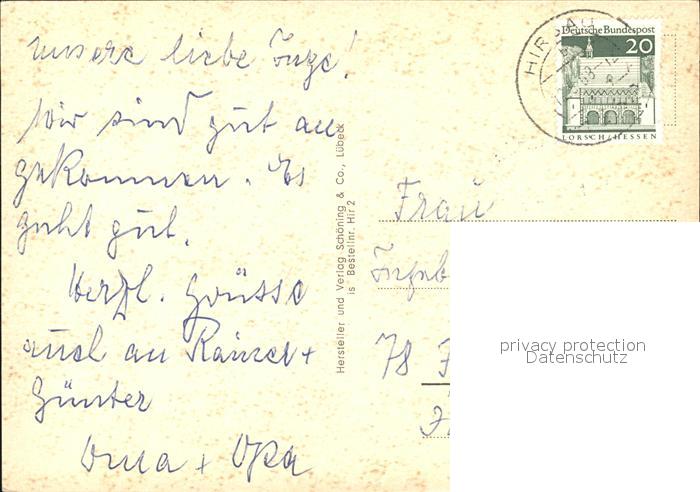 unsere liebe Inge!
Wir sind gut an
gekommen. Es
geht gut.
Herzl. Grüsse
auch an Rainer +
Günter
Oma + Opa
Hersteller und Verlag Schöning & Co., Lübeck
is Bestellnr. Hir 2
HIRSAU
Deutsche Bundespost
20
LORSCH/HESSEN
Frau
78
privacy protection
Datenschutz